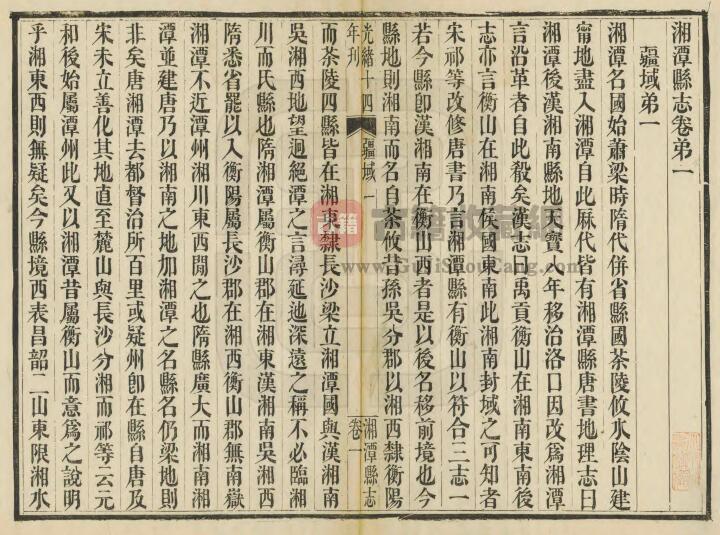 湘潭縣志卷弟一
疆域弟一
湘潭名國始蕭梁時隋代併省縣國茶陵攸水陰山建
甯地盡入湘潭自此厤代皆有湘潭縣唐書地理志曰
湘潭後漢湘南縣地天寶八年移治洛口因改爲湘潭
言沿革者自此殽矣漢志曰禹貢衡山在湘南東南後
志亦言衡山在湘南侯國東南此湘南封域之可知者
宋祁等改修唐書乃言湘潭縣有衡山以符合三志一
若今縣卽漢湘南在衡山西者是以後名移前境也今
縣地則湘南而名自茶攸昔孫吳分郡以湘西隸衡陽
光緒十四
年刊
疆域
一
湘潭縣志
卷一
而茶陵四縣皆在湘東隸長沙梁立湘潭國與漢湘南
吳湘西地望迥絕潭之言潯延迆深遠之稱不必臨湘
川而氏縣也隋湘潭屬衡山郡在湘東漢湘南吳湘西
隋悉省罷以入衡陽屬長沙郡在湘西衡山郡無南嶽
湘潭不近潭州湘川東西閒之也隋縣廣大而湘南湘
潭並建唐乃以湘南之地加湘潭之名縣名仍梁地則
非矣唐湘潭去都督治所百里或疑州卽在縣自唐及
宋未立善化其地直至麓山與長沙分湘而祁等云元
和後始屬潭州此又以湘潭昔屬衡山而意爲之說明
乎湘東西則無疑矣今縣境西表昌韶二山東限湘水
古籍
古籍收藏網
www.GuJiShouCang.com